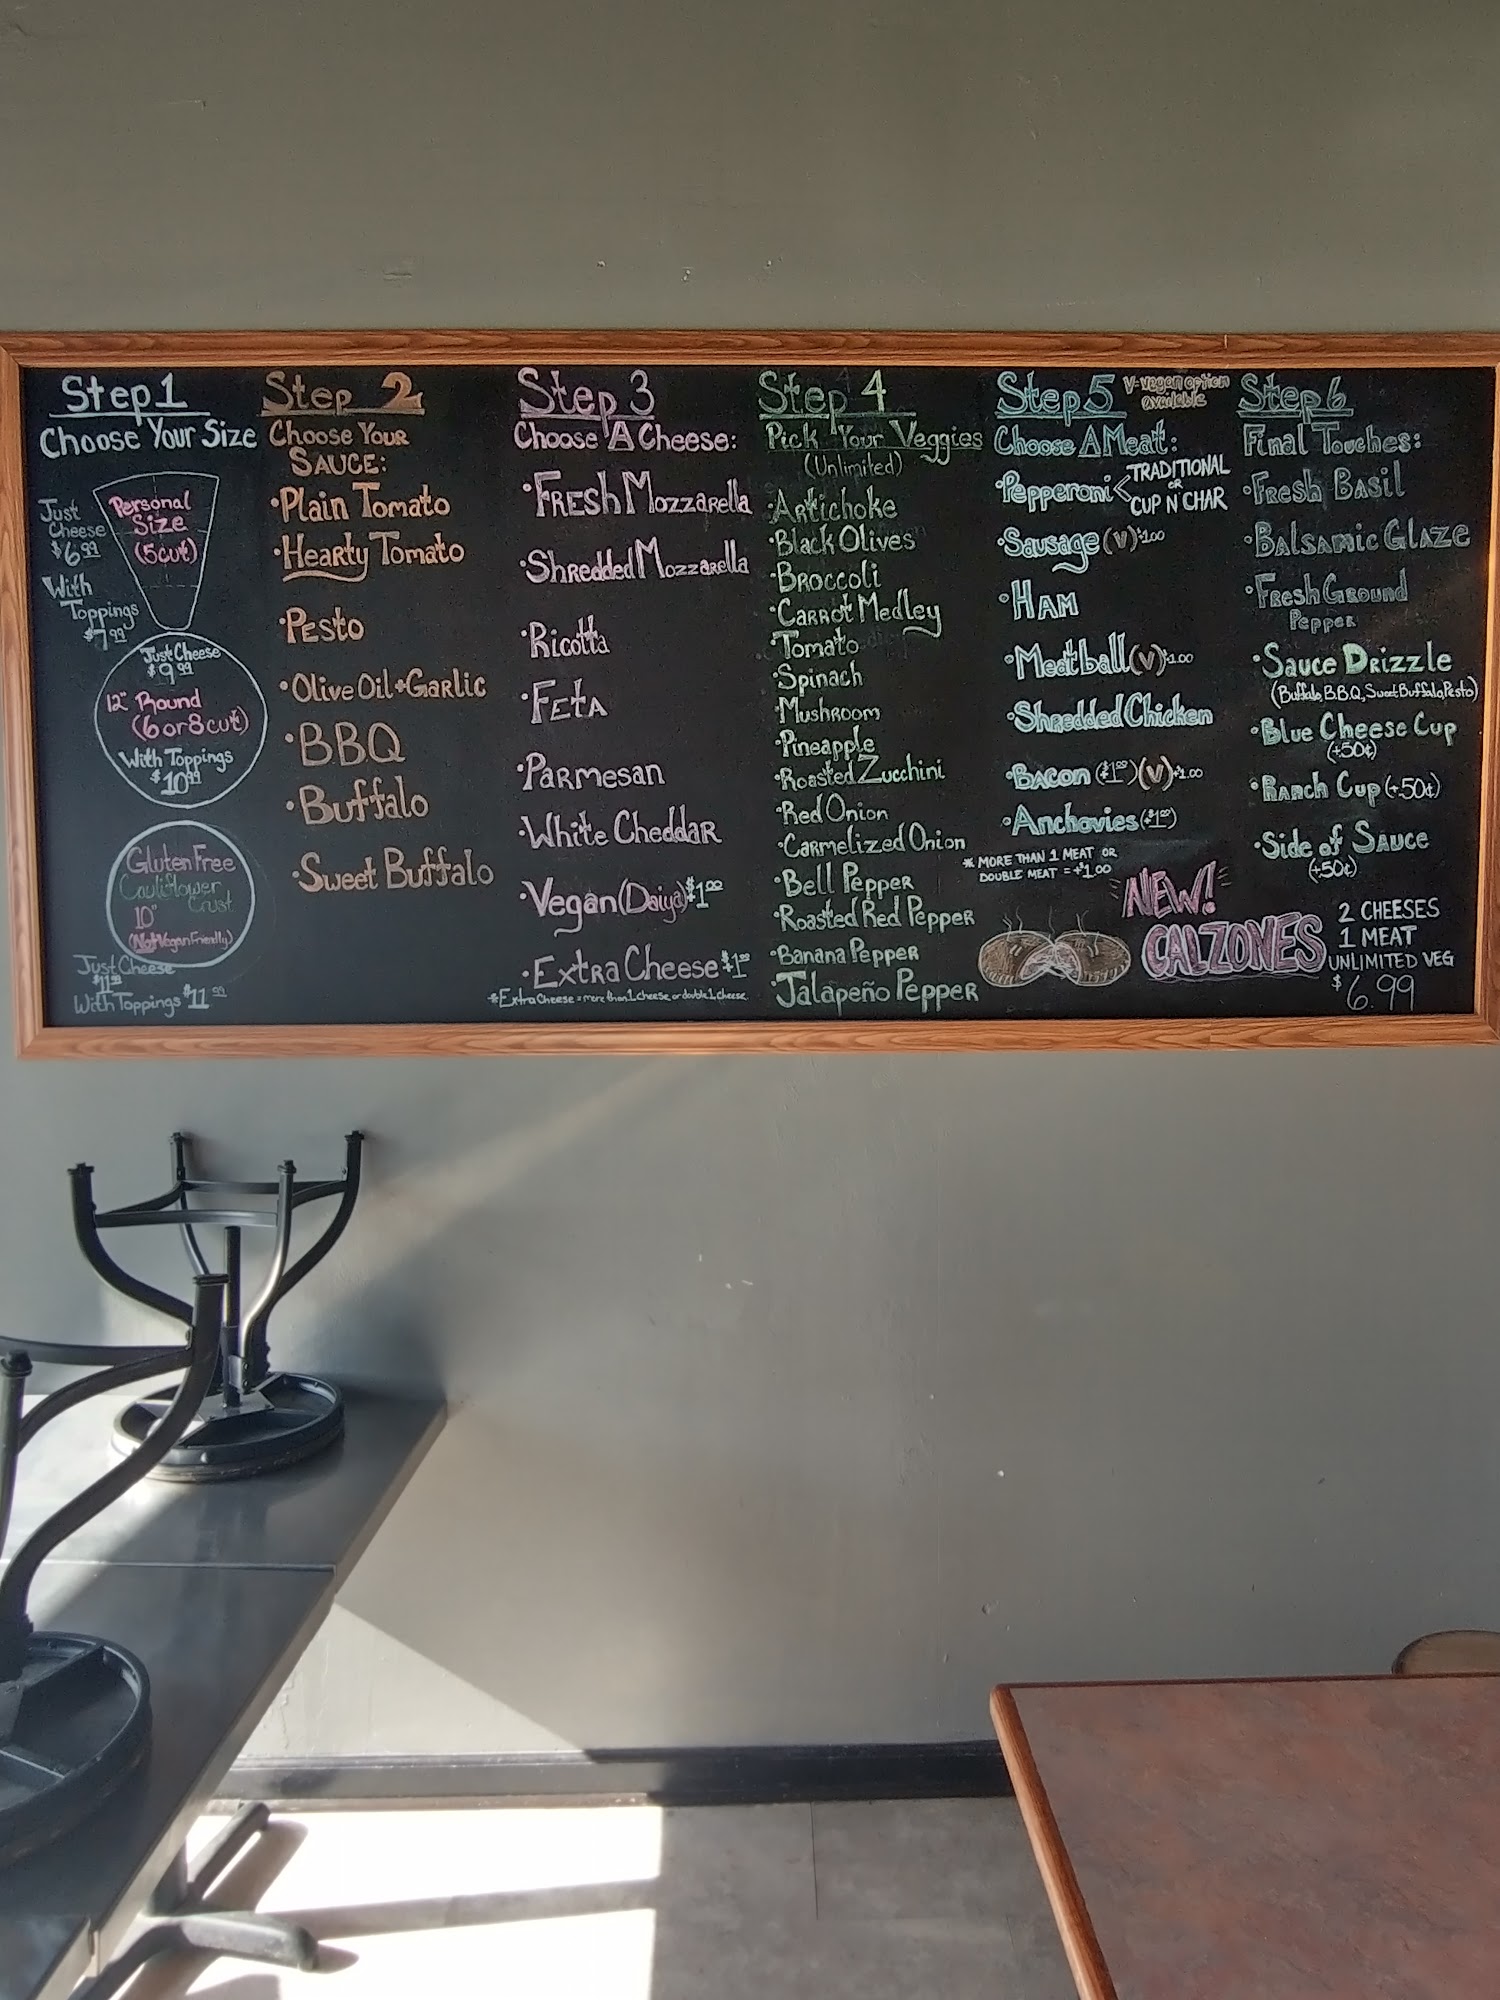 Step 1
Choose Your Size
Just
Cheese
$6.99
With
Toppings
$7.99
Personal
Size
(5cut)
Just Cheese
$9.99
12" Round
(6 or 8 cut)
With Toppings
$10.99
Gluten Free
Cauliflower
Crust
10"
(Not Vegan Friendly)
Just Cheese
With Toppings $11.99
Step 2
Choose Your
Sauce:
•Plain Tomato
•Hearty Tomato
•Pesto
•Olive Oil+Garlic
•BBQ
•Buffalo
•Sweet Buffalo
Step 3
Choose A Cheese:
•Fresh Mozzarella
•Shredded Mozzarella
•Ricotta
•Feta
•Parmesan
•White Cheddar
•Vegan (Daiya) $1.00
•Extra Cheese $1.00
*Extra Cheese = more than 1 cheese or double 1 cheese
Step 4
Pick Your Veggies
(Unlimited)
•Artichoke
•Black Olives
•Broccoli
•Carrot Medley
•Tomato
•Spinach
•Mushroom
•Pineapple
•Roasted Zucchini
•Red Onion
•Carmelized Onion
•Bell Pepper
•Roasted Red Pepper
•Banana Pepper
•Jalapeño Pepper
Step 5
V=vegan option
available
Choose A Meat:
•Pepperoni < TRADITIONAL
OR
CUP N' CHAR
•Sausage (V) $1.00
•Ham
•Meatball (V) $1.00
•Shredded Chicken
•Bacon ($1.00) (V) +$1.00
•Anchovies (+$1.00)
* MORE THAN 1 MEAT OR
DOUBLE MEAT = +$1.00
Step 6
Final Touches:
•Fresh Basil
•Balsamic Glaze
•Fresh Ground
Pepper
•Sauce Drizzle
(Buffalo, B.B.Q, Sweet Buffalo, Pesto)
•Blue Cheese Cup
(+50¢)
•Ranch Cup (+.50¢)
•Side of Sauce
(+50¢)
NEW!
CALZONES
2 CHEESES
1 MEAT
UNLIMITED VEG
$6.99